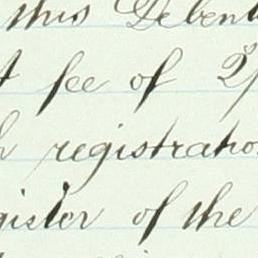 this Deben
fee of 2/
registratio
gister of the